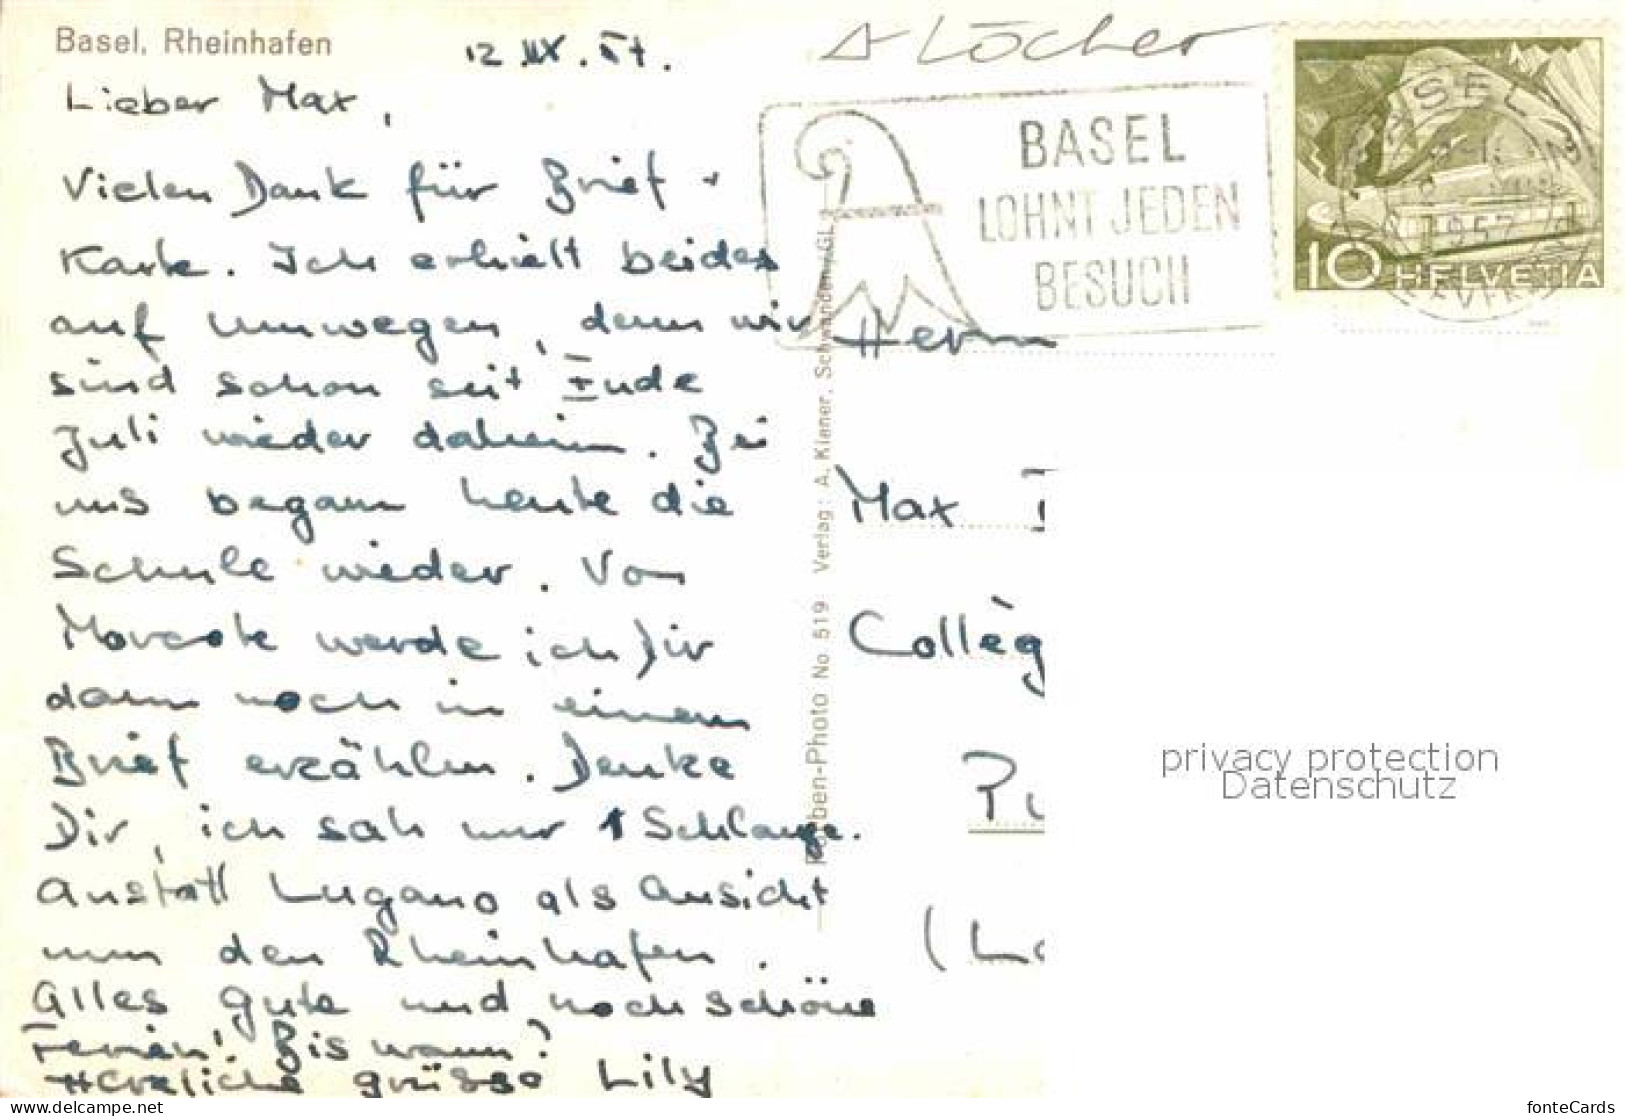 Basel, Rheinhafen
Löcher
Lieber Max,
Vielen Dank für Brief +
Karte. Ich erhielt beides
auf Umwegen, denn wir
sind schon seit Ende
Juli wieder daheim. Bei
uns begann heute die
Schule wieder. Von
Morcote werde ich Dir
dann noch in einem
Brief erzählen. Denke
Dir, ich sah nur 1 Schlange.
Anstatt Lugano als Ansicht
nun den Rheinhafen.
Alles gute und noch schöne
Ferien! Bis wann?
Herzliche grüsse Lily
BASEL
LOHNT JEDEN
BESUCH
BASEL
1957
10 HELVETIA
Farben-Photo No 519 Verlag: A. Kiener, Schwanden/GL
Herrn
Max
Collèg
privacy protection
Datenschutz
www.delcampe.net
fonteCards